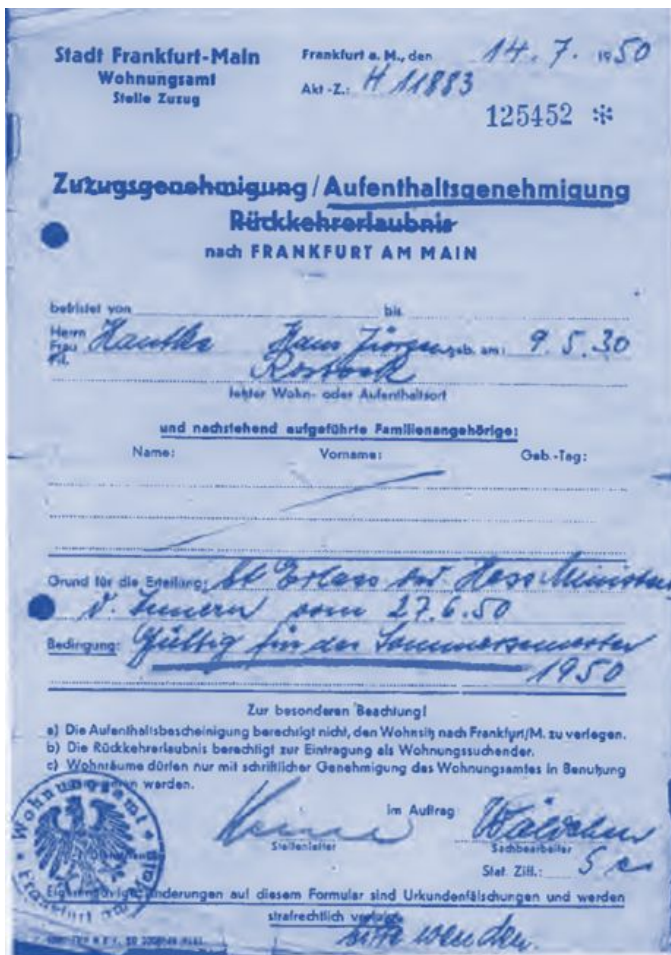 Stadt Frankfurt-Main
Wohnungsamt
Stelle Zuzug
Frankfurt a. M., den 14. 7. 1950
Akt-Z.: H 11883
125452 *
Zuzugsgenehmigung / Aufenthaltsgenehmigung
Rückkehrerlaubnis
nach FRANKFURT AM MAIN
befristet von bis
Herrn
Frau Hans Jürgen geb. am: 9. 5. 30
Frl.
Rostock
letzter Wohn- oder Aufenthaltsort
und nachstehend aufgeführte Familienangehörige:
Name: Vorname: Geb.-Tag:
Grund für die Erteilung: lt Erlass des Hess Ministers
d. Innern vom 27.6.50
Bedingung: Gültig für das Sommersemester
1950
Zur besonderen Beachtung!
a) Die Aufenthaltsbescheinigung berechtigt nicht, den Wohnsitz nach Frankfurt/M. zu verlegen.
b) Die Rückkehrerlaubnis berechtigt zur Eintragung als Wohnungssuchender.
c) Wohnräume dürfen nur mit schriftlicher Genehmigung des Wohnungsamtes in Benutzung
werden.
im Auftrag
Stellenleiter Sachbearbeiter
Stat. Ziff.: 5
Wohnungsamt
Frankfurt am Main
Eigenhändige Änderungen auf diesem Formular sind Urkundenfälschungen und werden
strafrechtlich verfolgt.
bitte wenden.